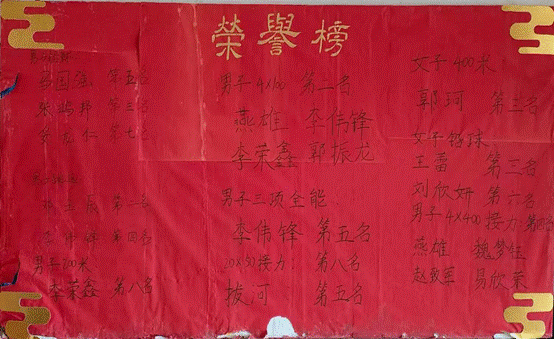 榮譽榜
第五名
第三名
第七名
第二名
第四名
男子200米
李荣鑫 第八名
男子4×100 第二名
燕雄 李伟锋
李荣鑫 郭振龙
男子三项全能:
李伟锋 第五名
10×50接力: 第八名
拔河 第五名
女子400米:
郭珂 第三名
女子铅球
王蕾 第三名
刘欣妍 第六名
男子4×400接力:第四名
燕雄 魏梦钰
赵致军 易欣荣